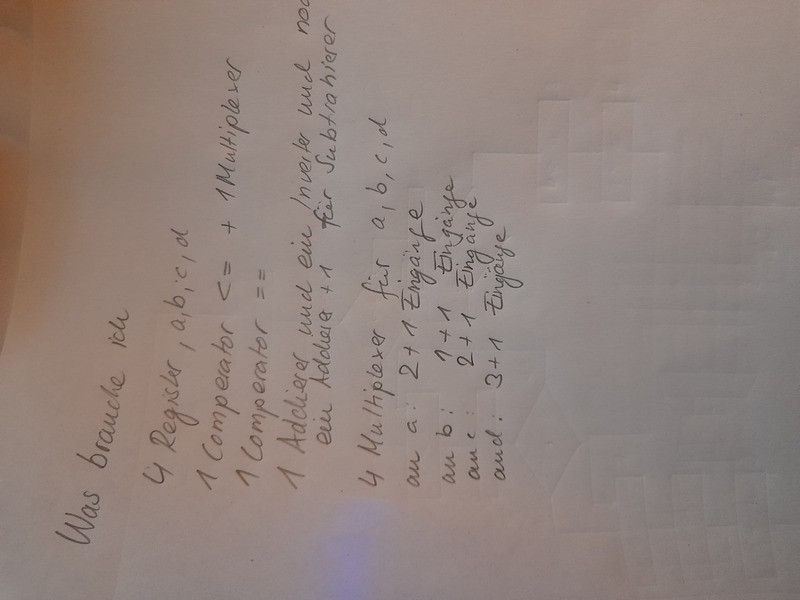 Was brauche ich
4 Register, a,b,c,d
1 Comperator <= + 1 Multiplexer
1 Comperator ==
1 Addierer und ein Inverter und noc
ein Addierer +1 für Subtrahierer
4 Multiplexer für a, b, c, d
an a: 2+1 Eingänge
an b: 1+1 Eingänge
an c: 2+1 Eingänge
and: 3+1 Eingänge